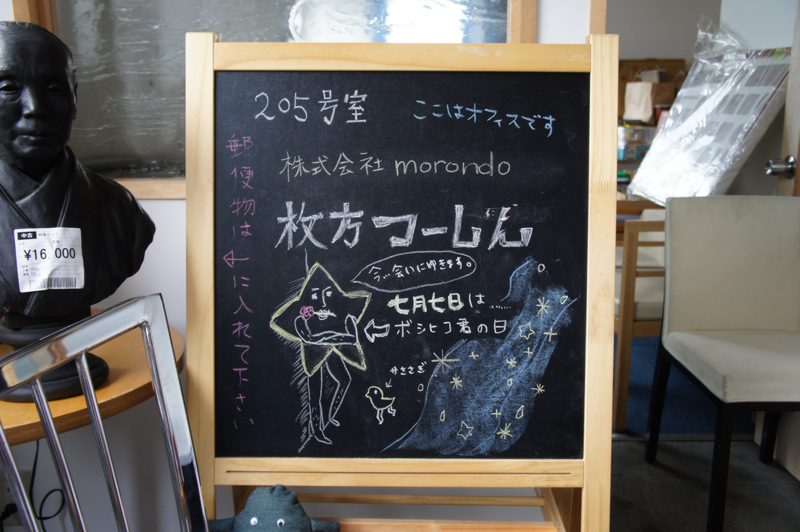 205号室
ここはオフィスです
株式会社 morondo
枚方つーしん
郵便物は←に入れて下さい
今、会いに叩きます。
七月七日は……
ボシヒコ君の日
かささぎ
中古
¥16,000